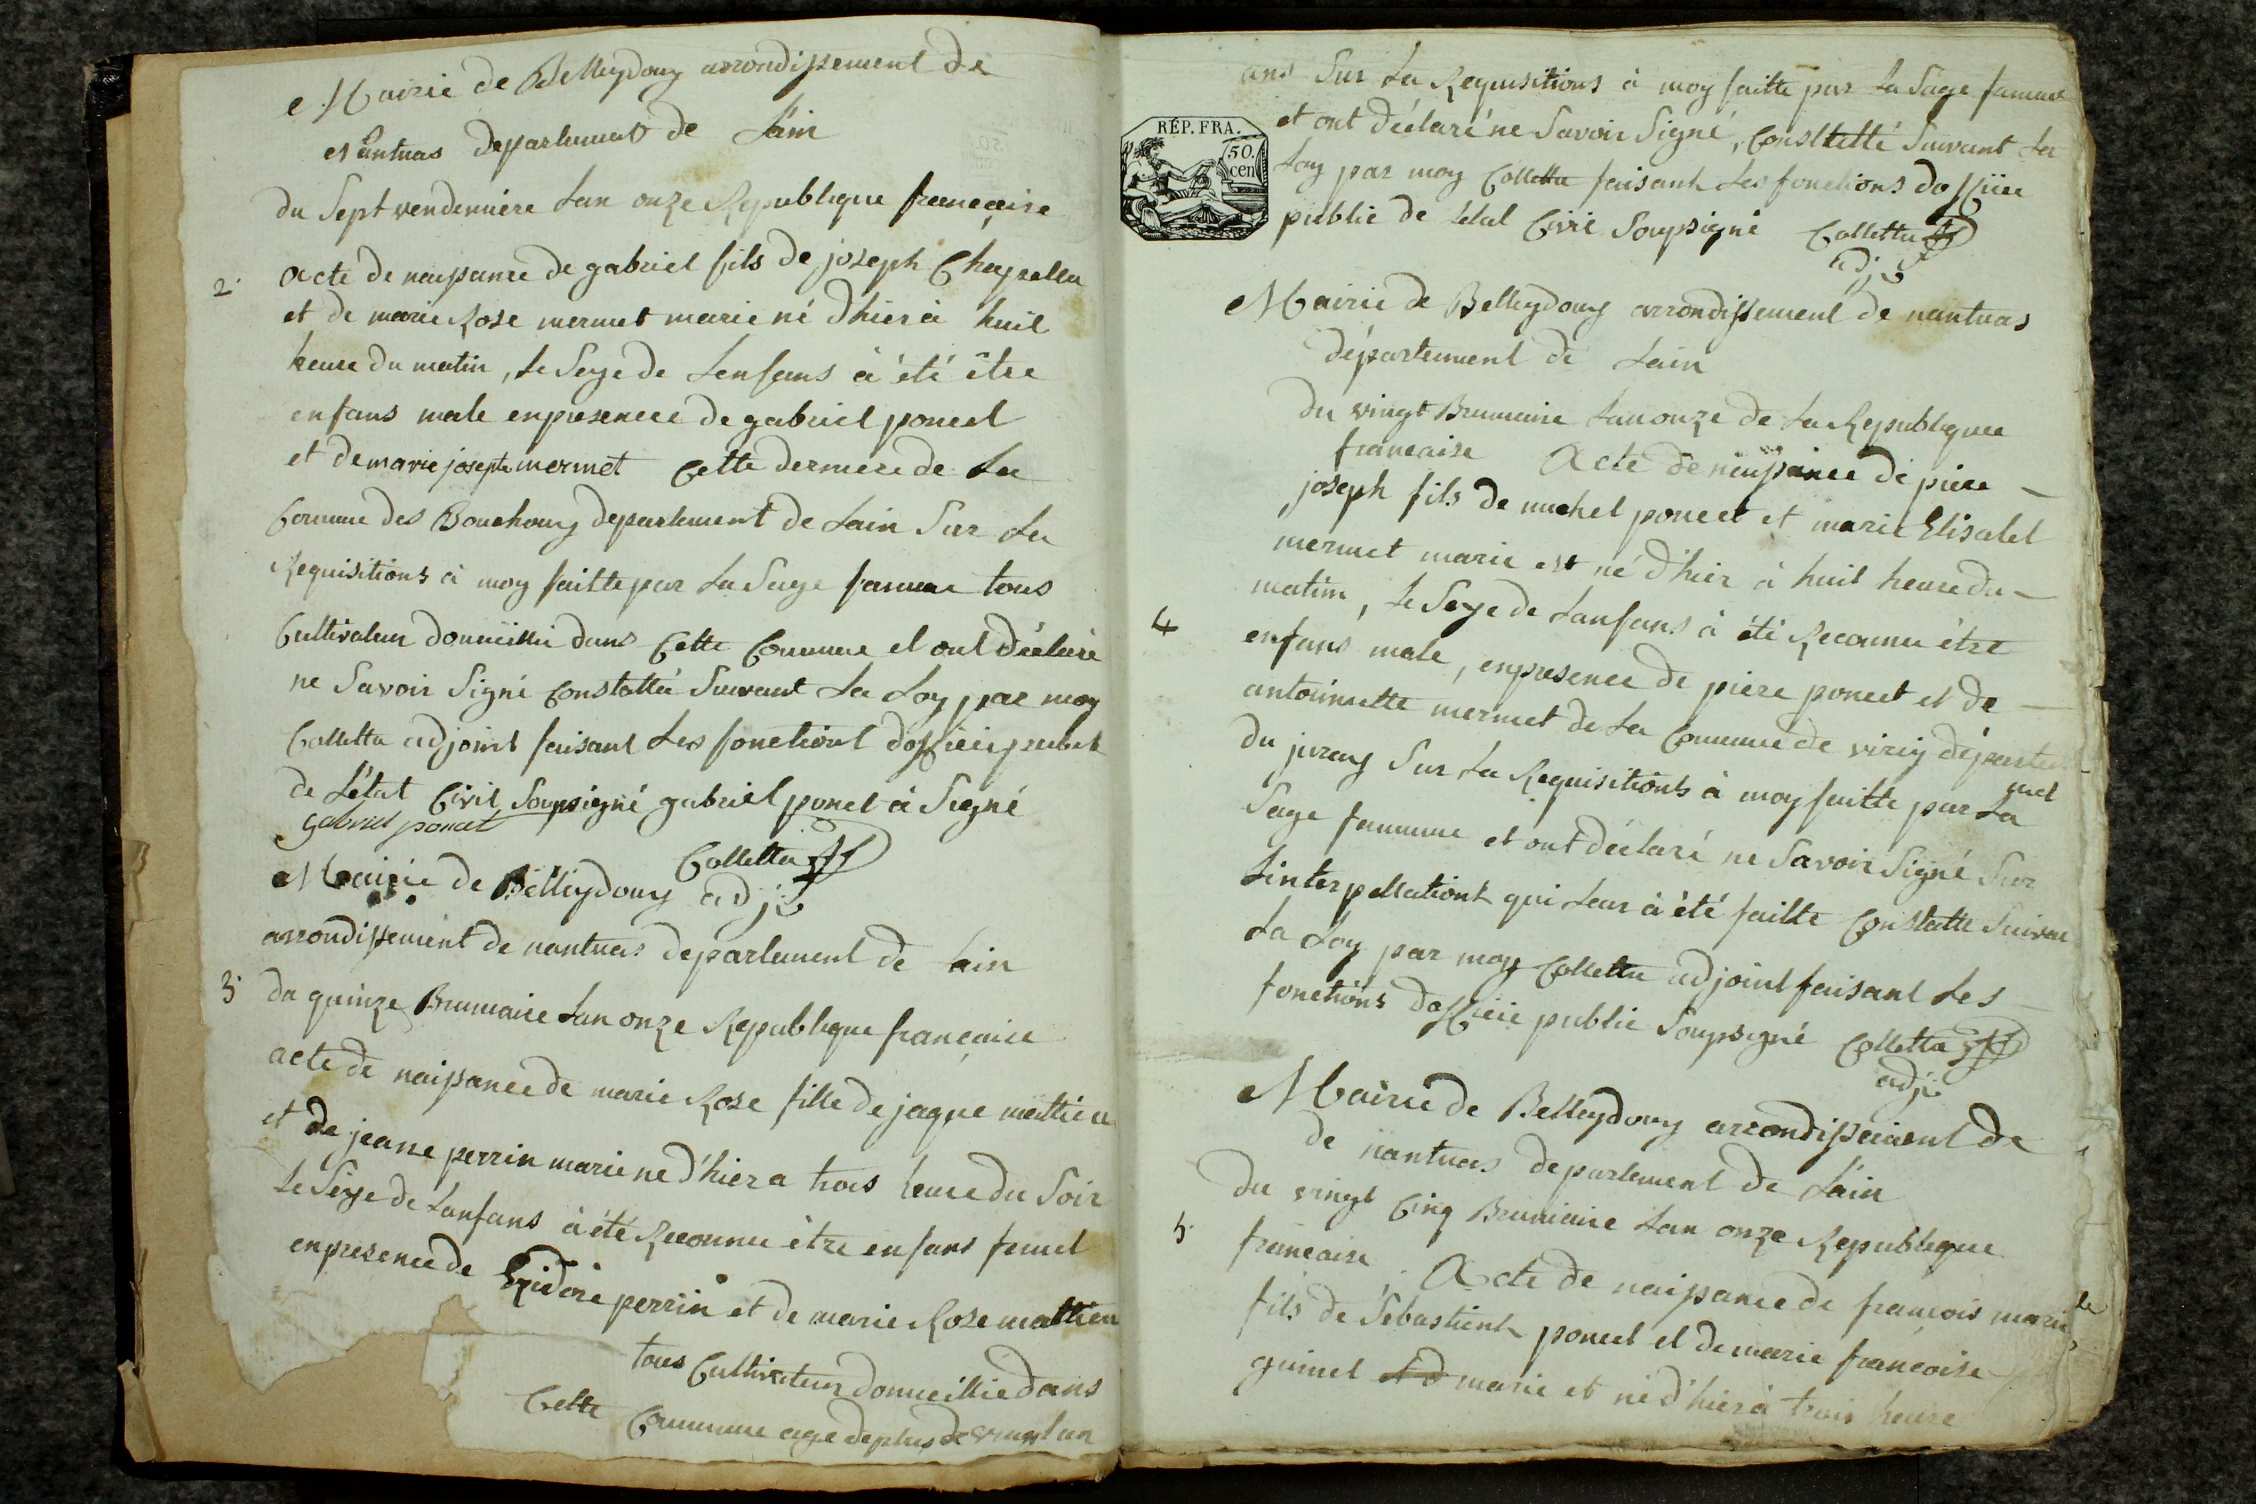 Mairie de Belleydoux arrondissement de
Nantuas departement de Lain
du Sept vendemiere Lan onze Republique françaisse
2. Acte de naissance de gabriel fils de joseph Chapellu
et de marie Rose mermet marie né d'hier à huit
heure du matin, Le Sexe de Lenfans à été être
enfans male enpresence de gabriel poncet
et de marie josephe mermet Cette derniere de La
Commune des Bouchoux departement de Lain Sur La
Requisitions à moy faitte par La Sage famme tous
Cultivateur domicillié dans Cette Commune et ont déclaré
ne Savoir Signé Constatté Suivant La Loy par moy
Colletta adjoint faisant Les fonctions dofficier public
de L'état Civil Soussigné gabriel poncet à Signé
gabriel poncet
Colletta
adj
Mairie de Belleydoux
arrondissement de nantuas departement de Lain
3. du quinze Brumaire Lan onze Republique française
acte de naissance de marie Rose fille de jaque mattieu
et de jeane perrin marie né d'hier a trois heure du Soir
Le Sexe de Lanfans à été Reconnu être enfans femel
enpresence de Exidore perrin et de marie Rose mattieu
tous Cultivateur domicillie dans
Cette Commune age de plus de vingt un
ans Sur La Requisitions à moy faitte par La Sage famme
RÉP. FRA.
50.
cen
et ont déclaré ne Savoir Signé, Constatté Suivant La
Loy par moy Colletta faisant Les fonctions dofficier
public de Letat Civil Soussigné Colletta
adj
Mairie de Belleydoux arrondissement de nantuas
département de Lain
du vingt Brumaire Lan onze de La Republique
francaise Acte de naissance de piere
joseph fils de michel poncet et marie Elisabet
mermet marie est né d'hier à huit heure du
matin, Le Sexe de Lanfans à été Reconnu être
4 enfans male, enpresence de piere poncet et de
antoinette mermet de La Commune de viry départe
met
du jurax Sur La Requisitions à moy faitte par La
Sage famme et ont déclaré ne Savoir Signé Sur
Linterpellationt qui Leur à été faitte Constatte Suivan
La Loy par moy Colletta adjoint faisant Les
fonctions dofficie public Soussigné Colletta
adj
Mairie de Belleydoux arrondissement de
de nantuas departement de Lain
du vingt Cinq Brumaire Lan onze Republique
5. francaise, Acte de naissance de francois marie
fils de Sebastient poncet et de marie françoise
guinet marie et né d'hier à trois heure